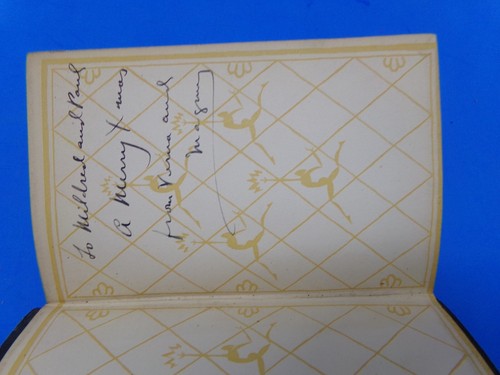 To Mildred and Paul
A Merry Xmas
from Verna and